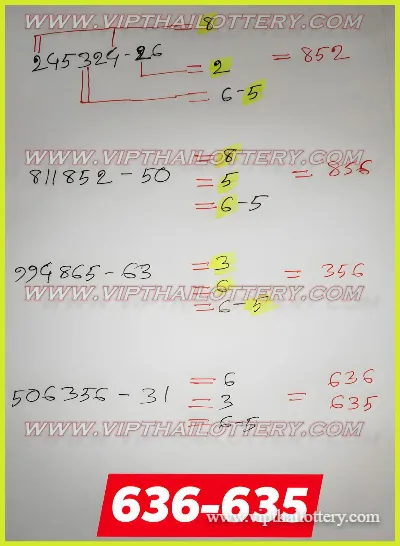 WWW.VIPTHAILOTTERY.COM
= 8
245324-26 = 2 = 852
= 6-5
WWW.VIPTHAILOTTERY.COM
= 8
811852-50 = 5 = 856
= 6-5
WWW.VIPTHAILOTTERY.COM
= 3
994865-63 = 6 = 356
= 6-5
WWW.VIPTHAILOTTERY.COM
= 6 636
506356-31 = 3 = 635
= 6-5
WWW.VIPTHAILOTTERY.COM
636-635
www.vipthailottery.com